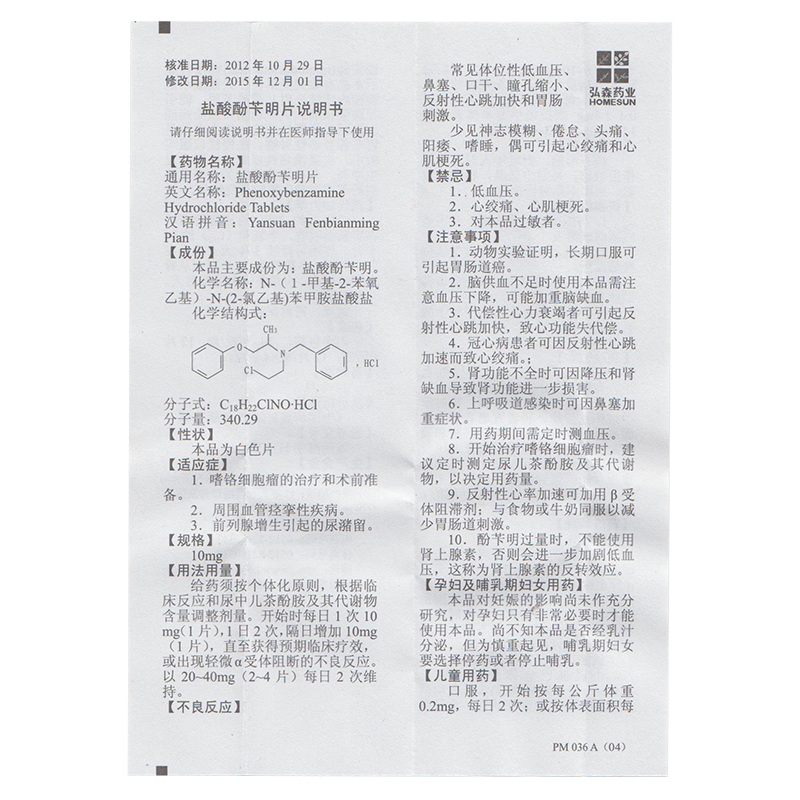 核准日期：2012 年 10 月 29 日
修改日期：2015 年 12 月 01 日
盐酸酚苄明片说明书
请仔细阅读说明书并在医师指导下使用
【药物名称】
通用名称：盐酸酚苄明片
英文名称：Phenoxybenzamine
Hydrochloride Tablets
汉语拼音：Yansuan Fenbianming
Pian
【成份】
本品主要成份为：盐酸酚苄明。
化学名称：N-（１-甲基-2-苯氧
乙基）-N-(2-氯乙基)苯甲胺盐酸盐
化学结构式：
CH₃
O
N
Cl
，HCl
分子式：C₁₈H₂₂ClNO·HCl
分子量：340.29
【性状】
本品为白色片
【适应症】
1．嗜铬细胞瘤的治疗和术前准
备。
2．周围血管痉挛性疾病。
3．前列腺增生引起的尿潴留。
【规格】
10mg
【用法用量】
给药须按个体化原则，根据临
床反应和尿中儿茶酚胺及其代谢物
含量调整剂量。开始时每日 1 次 10
mg(1 片)，1 日 2 次，隔日增加 10mg
（1 片），直至获得预期临床疗效，
或出现轻微α受体阻断的不良反应。
以 20~40mg（2~4 片）每日 2 次维
持。
【不良反应】
常见体位性低血压、
鼻塞、口干、瞳孔缩小、
反射性心跳加快和胃肠
刺激。
少见神志模糊、倦怠、头痛、
阳痿、嗜睡，偶可引起心绞痛和心
肌梗死。
【禁忌】
1．低血压。
2．心绞痛、心肌梗死。
3．对本品过敏者。
【注意事项】
1．动物实验证明，长期口服可
引起胃肠道癌。
2．脑供血不足时使用本品需注
意血压下降，可能加重脑缺血。
3．代偿性心力衰竭者可引起反
射性心跳加快，致心功能失代偿。
4．冠心病患者可因反射性心跳
加速而致心绞痛。；
5．肾功能不全时可因降压和肾
缺血导致肾功能进一步损害。
6．上呼吸道感染时可因鼻塞加
重症状。
7．用药期间需定时测血压。
8．开始治疗嗜铬细胞瘤时，建
议定时测定尿儿茶酚胺及其代谢
物，以决定用药量。
9．反射性心率加速可加用 β 受
体阻滞剂；与食物或牛奶同服以减
少胃肠道刺激。
10．酚苄明过量时，不能使用
肾上腺素，否则会进一步加剧低血
压，这称为肾上腺素的反转效应。
【孕妇及哺乳期妇女用药】
本品对妊娠的影响尚未作充分
研究，对孕妇只有非常必要时才能
使用本品。尚不知本品是否经乳汁
分泌，但为慎重起见，哺乳期妇女
要选择停药或者停止哺乳。
【儿童用药】
口服，开始按每公斤体重
0.2mg，每日 2 次；或按体表面积每
弘森药业
HOMESUN
PM 036 A（04）